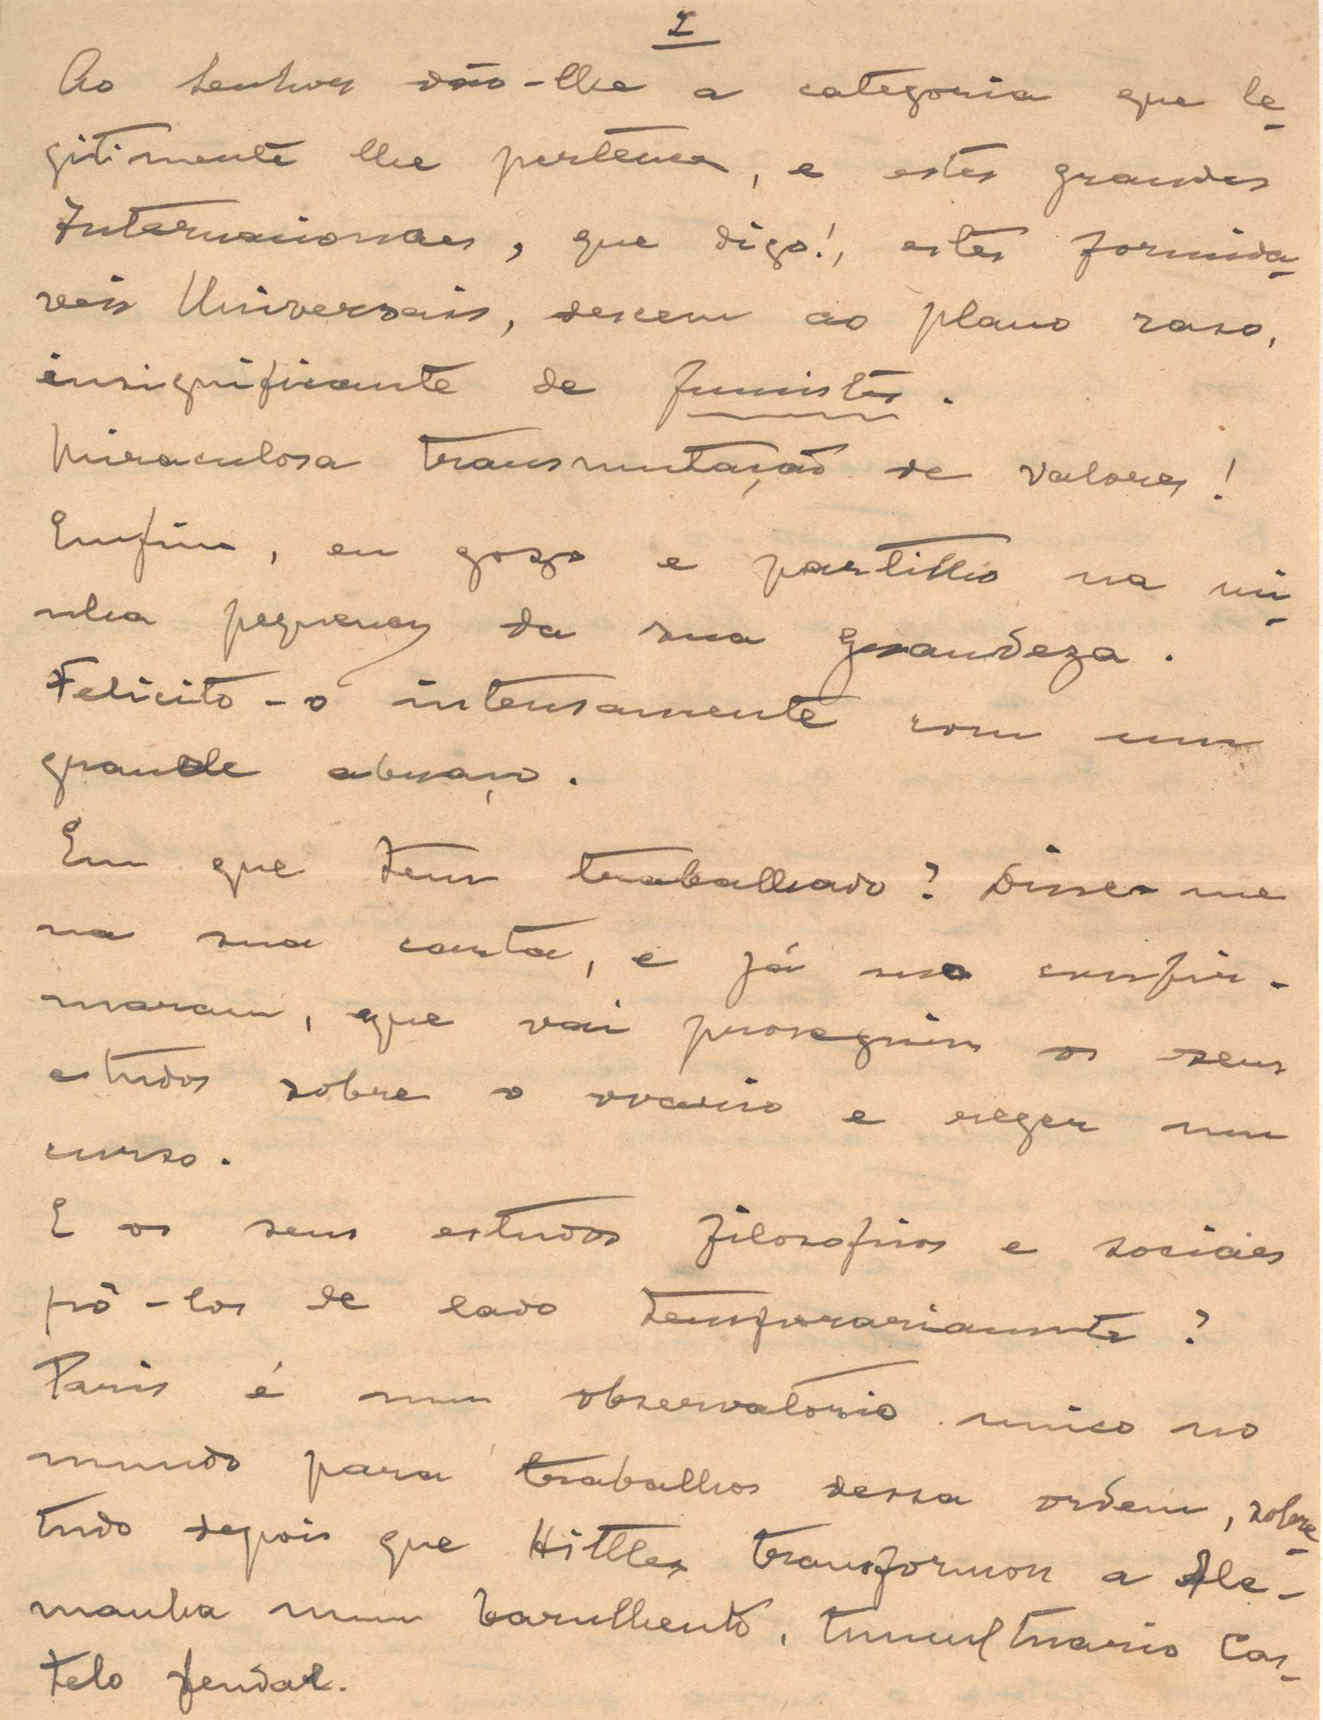 2
Ao Senhor dão-lhe a categoria que le-
gitimente lhe pertence, e estes grandes
Internacionaes, que digo!, estes formida-
veis Universais, descem ao plano raso,
insignificante de fumistes.
Miraculosa transmutação de valores!
Emfim, eu gozo e partilho na mi-
nha pequenez da sua grandeza.
Felicito-o intensamente com um
grande abraço.
Em que tem trabalhado? Disse-me
na sua carta, e já mo confir-
maram, que vai proseguir os seus
estudos sobre o ovario e reger um
curso.
E os seus estudos filosoficos e sociaes
pô-los de lado temporariamente?
Paris é um observatorio unico no
mundo para trabalhos dessa ordem, sobre-
tudo depois que Hittler transformou a Ale-
manha num barulhento, tumultuario Cas-
telo feudal.